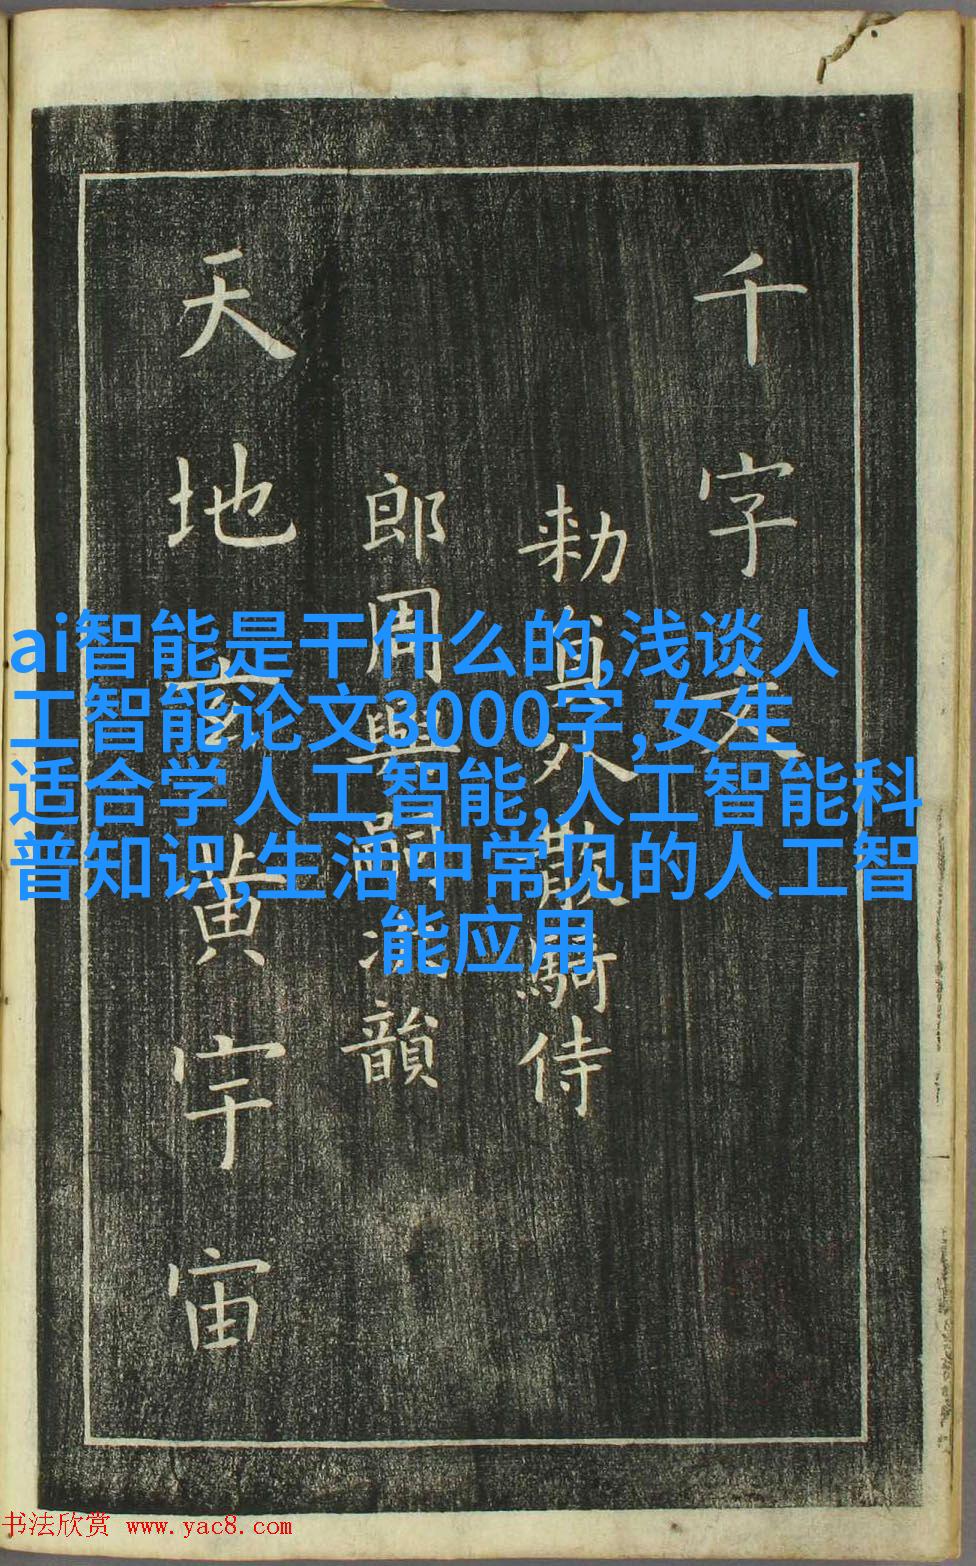 千字文
敕員外散騎侍
郎周興嗣次韻
天地玄黃宇宙
ai智能是干什么的,浅谈人
工智能论文3000字,女生
适合学人工智能,人工智能科
普知识,生活中常见的人工智
能应用
书法欣赏 www.yac8.com